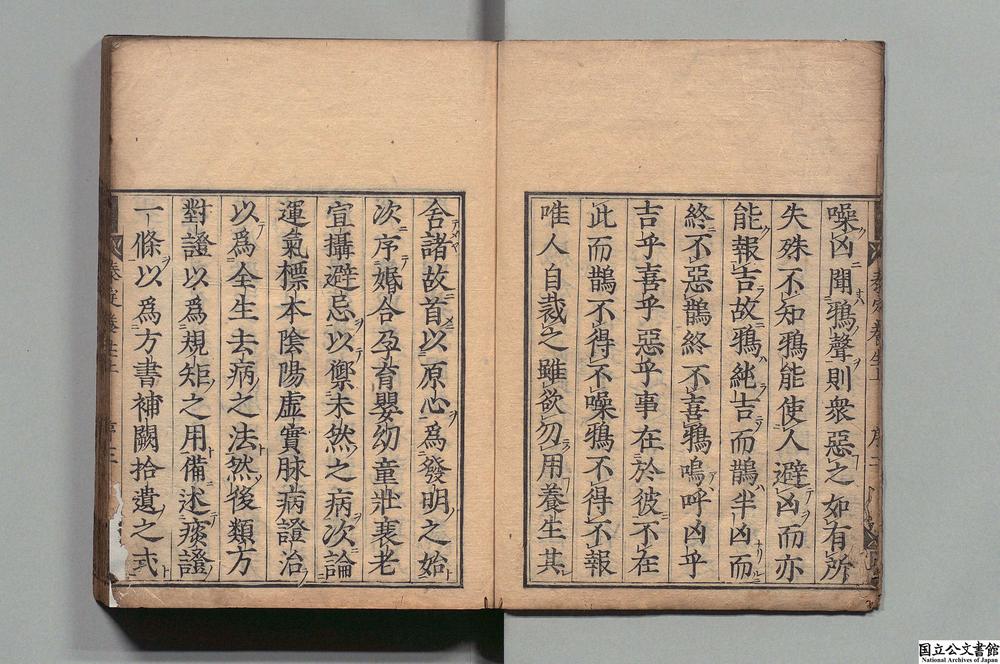 噪凶聞鴉聲則衆惡之如有所
失殊不知鴉能使人避凶而亦
能報吉故鴉純吉而鵲半凶而
終不惡鵲終不喜鴉嗚呼凶乎
吉乎喜乎惡乎事在於彼不在
此而鵲不得不噪鴉不得不報
唯人自裁之雖欲勿用養生其
舍諸故首以原心爲發明之始
次序婚合孕育嬰幼童壯衰老
宜攝避忌以禦未然之病次論
運氣標本陰陽虛實脉病證治
以爲全生去病之法然後類方
對證以爲規矩之用備述痰證
一條以爲方書補闕拾遺之式
国立公文書館
National Archives of Japan